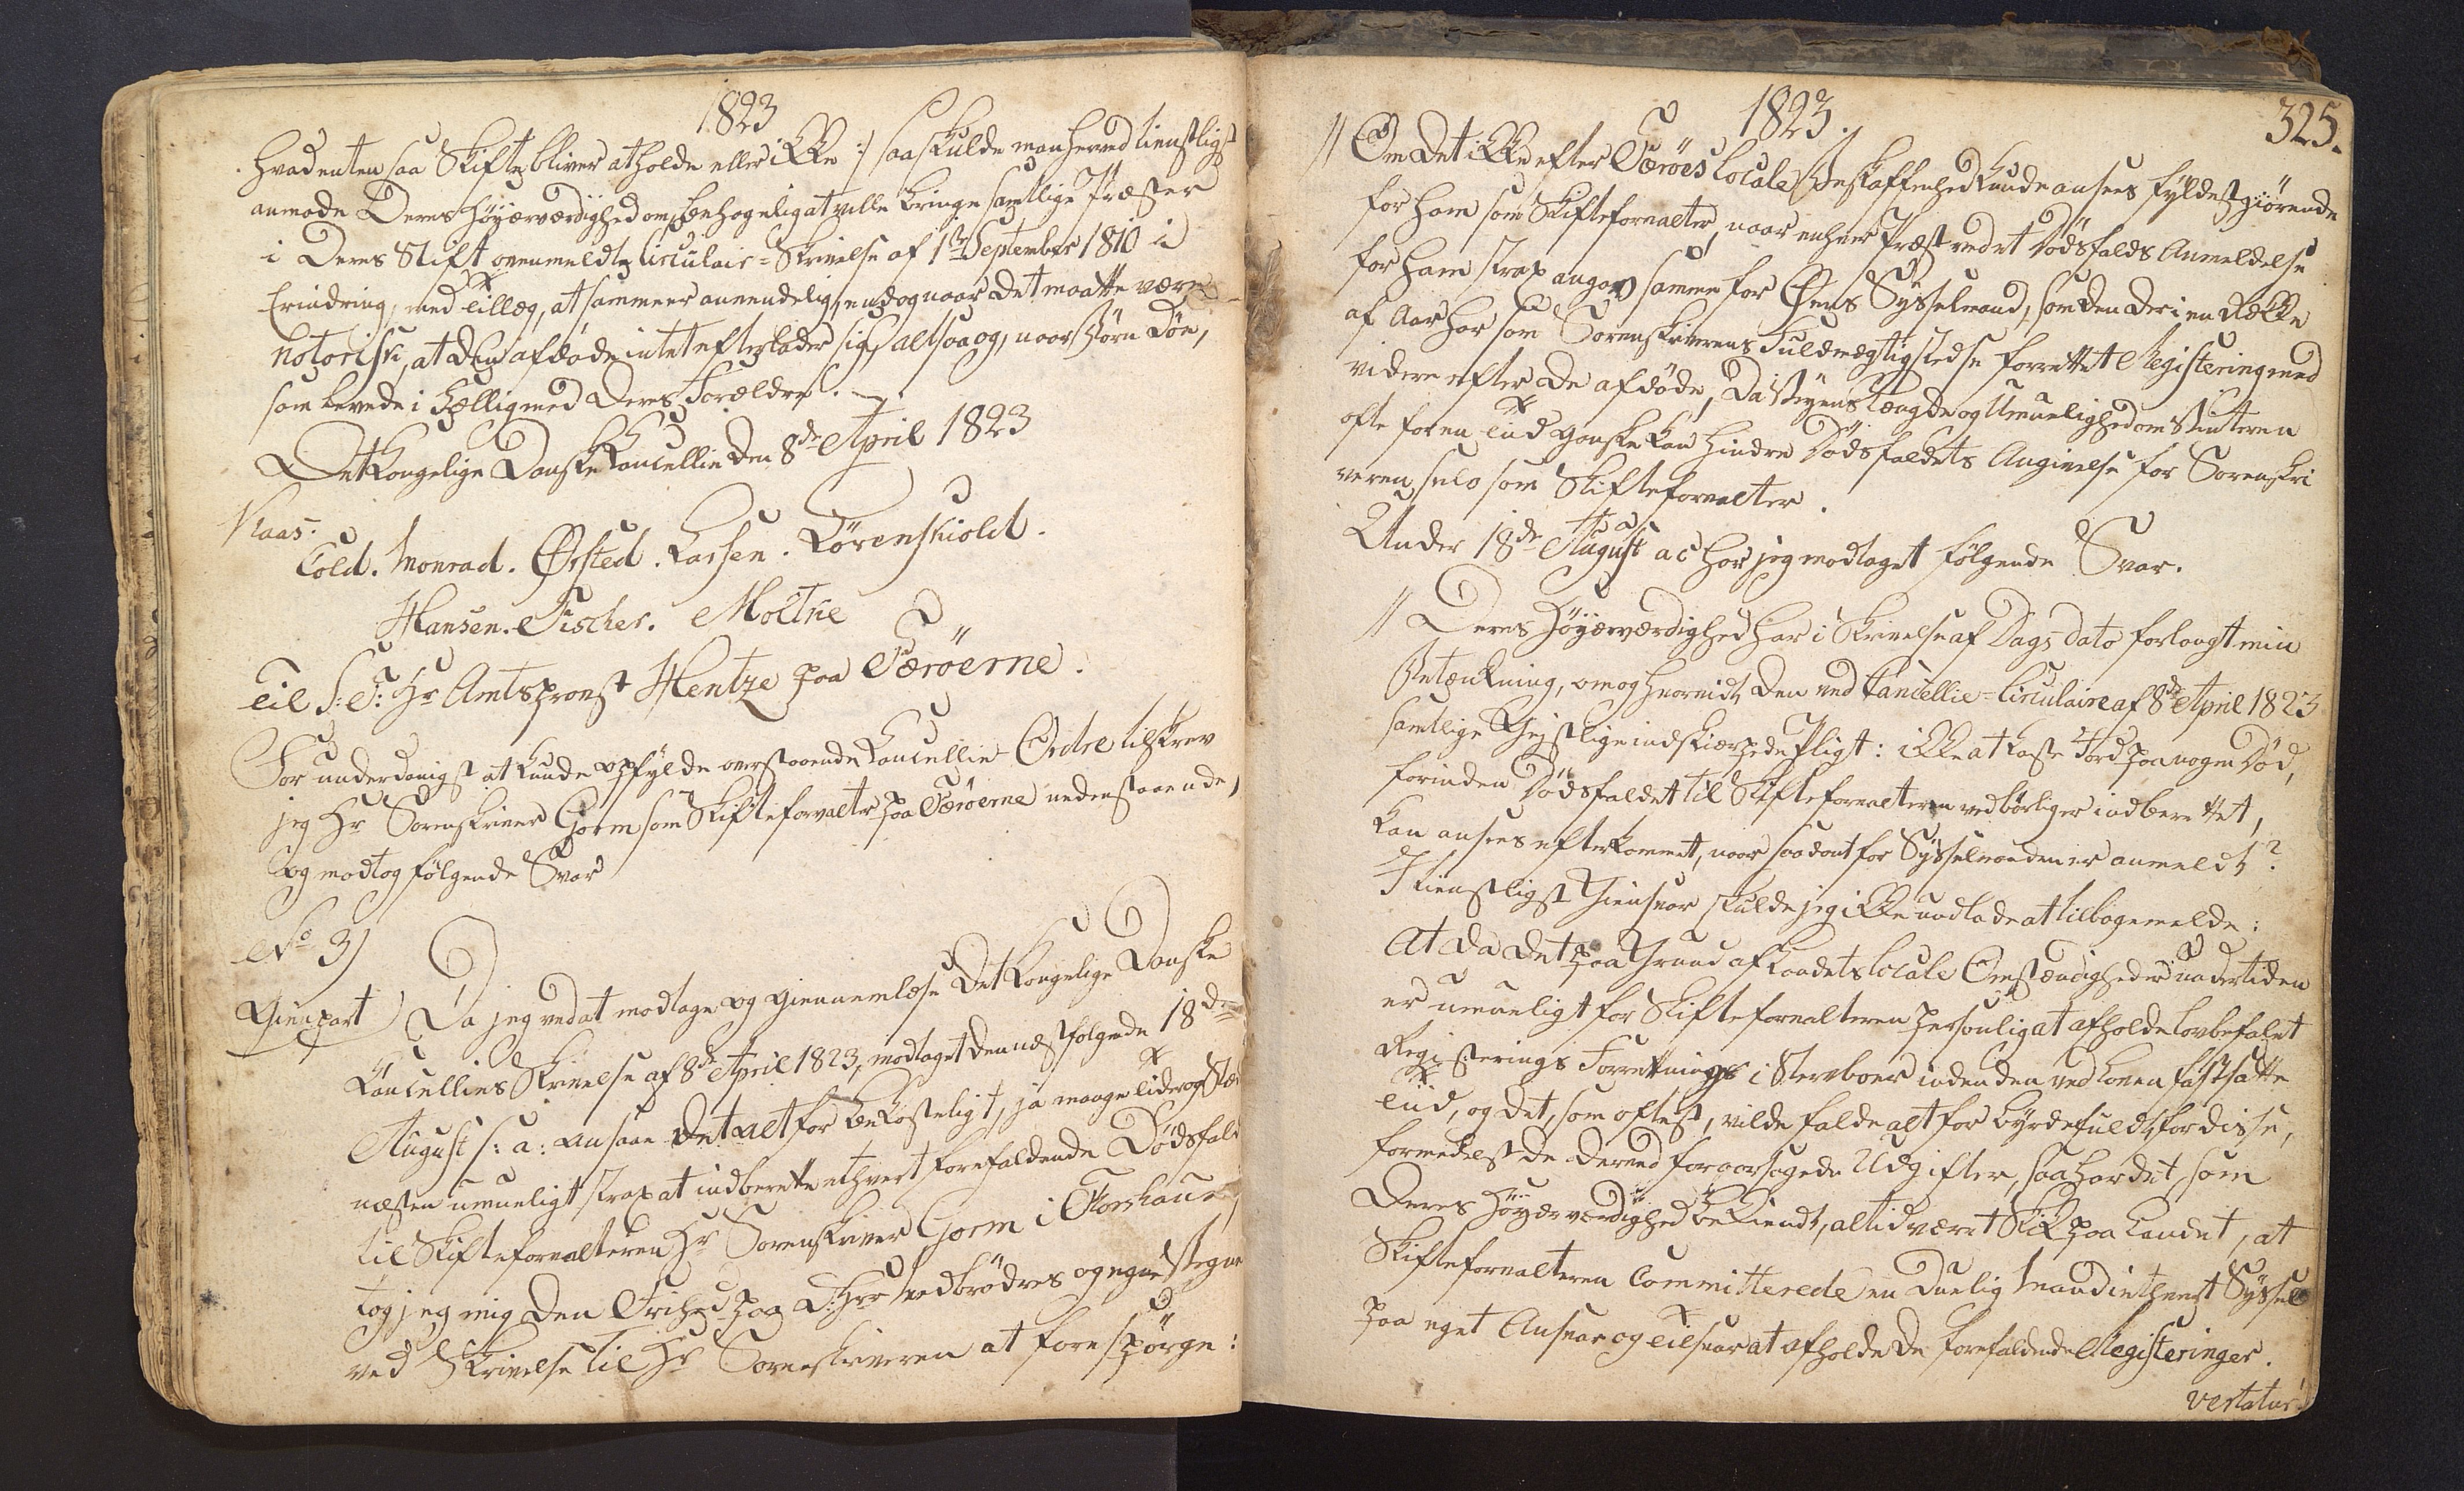 1823
hvadenten saa Skifte bliver at holde eller ikke :/ saa skulde man herved tienstligst
anmode Deres Höyærværdighed om, behageligat ville bringe samtlige Præster
i Deres Stift ovenmeldte Circulair-Skrivelse af 1te September 1810 i
Erindring, med Tillæg, at samme er anvendelig, endog naar det maatte være
notorisk, at den afdøde intet efterlader sig, altsaa og, naar Børn döe,
som levede i Fællig med deres Forældre.
Det Kongelige Danske Kancellie den 8de April 1823
Kaas.
Cold. Monrad. Ørsted. Lassen. Lövenskiold.
Hansen. Fischer. Moltke
Til S: T: Hr Amtsprovst Hentze paa Færöerne.
For underdanigst at kunde opfylde overstaaende Kancellie Ordre tilskrev
jeg Hr Sorenskriver Gorm som Skifteforvalter paa Færöerne nedenstaaende,
og modtog følgende Svar
No 3)
Gienpart) Da jeg ved at modtage og giennemlæse Det Kongelige Danske
Kancellies Skrivelse af 8de April 1823, modtaget den næstfølgende 18de
August s: a: ansaae det alt for bekosteligt, ja mange Tider og Stæ
næsten umueligt strax at indberette ethvert forefaldende Dödsfald
til Skifteforvalteren Hr Sorenskriver Gorm i Thorshavn,
tog jeg mig den Frihed paa D: Hrr Medbrödres og egne Vegne
ved Skrivelse til Hr Sorenskriveren at forespörge:
1823.
325.
// Om det ikke efter Færöes locale Beskaffenhed kunde ansees fyldestgiörende
for ham som Skifteforvalter, naar enhver Præst ved et Dödsfalds Anmeldelse
for ham strax angav samme for Øens Sysselmand, som den der i en Række
af Aar har som Sorenskriverens Fuldmægtig stedse forrettet Registering med
videre efter de afdöde, da Veyens Længde og Umuelighed om Vinteren
ofte for en Tid ganske kan hindre Dödsfaldets Angivelse for Sorenskri
veren selv som Skifteforvalter.
Under 18de August a c har jeg modtaget følgende Svar.
// Deres Höyærværdighed har i Skrivelse af Dags Dato forlangt min
Betænkning, om og hvorvidt den ved Cancellie-Circulaire af 8de April 1823
samtlige Gejstlige indskiærpede Pligt: ikke at kaste Jord paa nogen Död,
forinden Dödsfaldet til Skifteforvalteren vedbörligen indberettet,
kan ansees efterkommet, naar saadant for Sysselmanden er anmeldt?
I tienstligst Giensvar skulde jeg ikke undlade at tilbagemelde:
At da det paa Grund af Landets locale Omstændigheder undertiden
er umueligt for Skifteforvalteren personlig at afholde lovbefalet
Registerings Forretninger i Sterboer inden den ved Loven fastsatte
Tid, og det, som oftest, vilde falde alt for byrdefuldt for disse,
formedelst de derved foraarsagede Udgifter, saa har det, som
Deres Höyærværdighed bekiendt, altid været Skik paa Landet, at
Skifteforvalteren Committerede en duelig Mand i ethvert Syssel
paa eget Ansvar og Tilsvar at afholde de forefaldende Registeringer.
vertatur